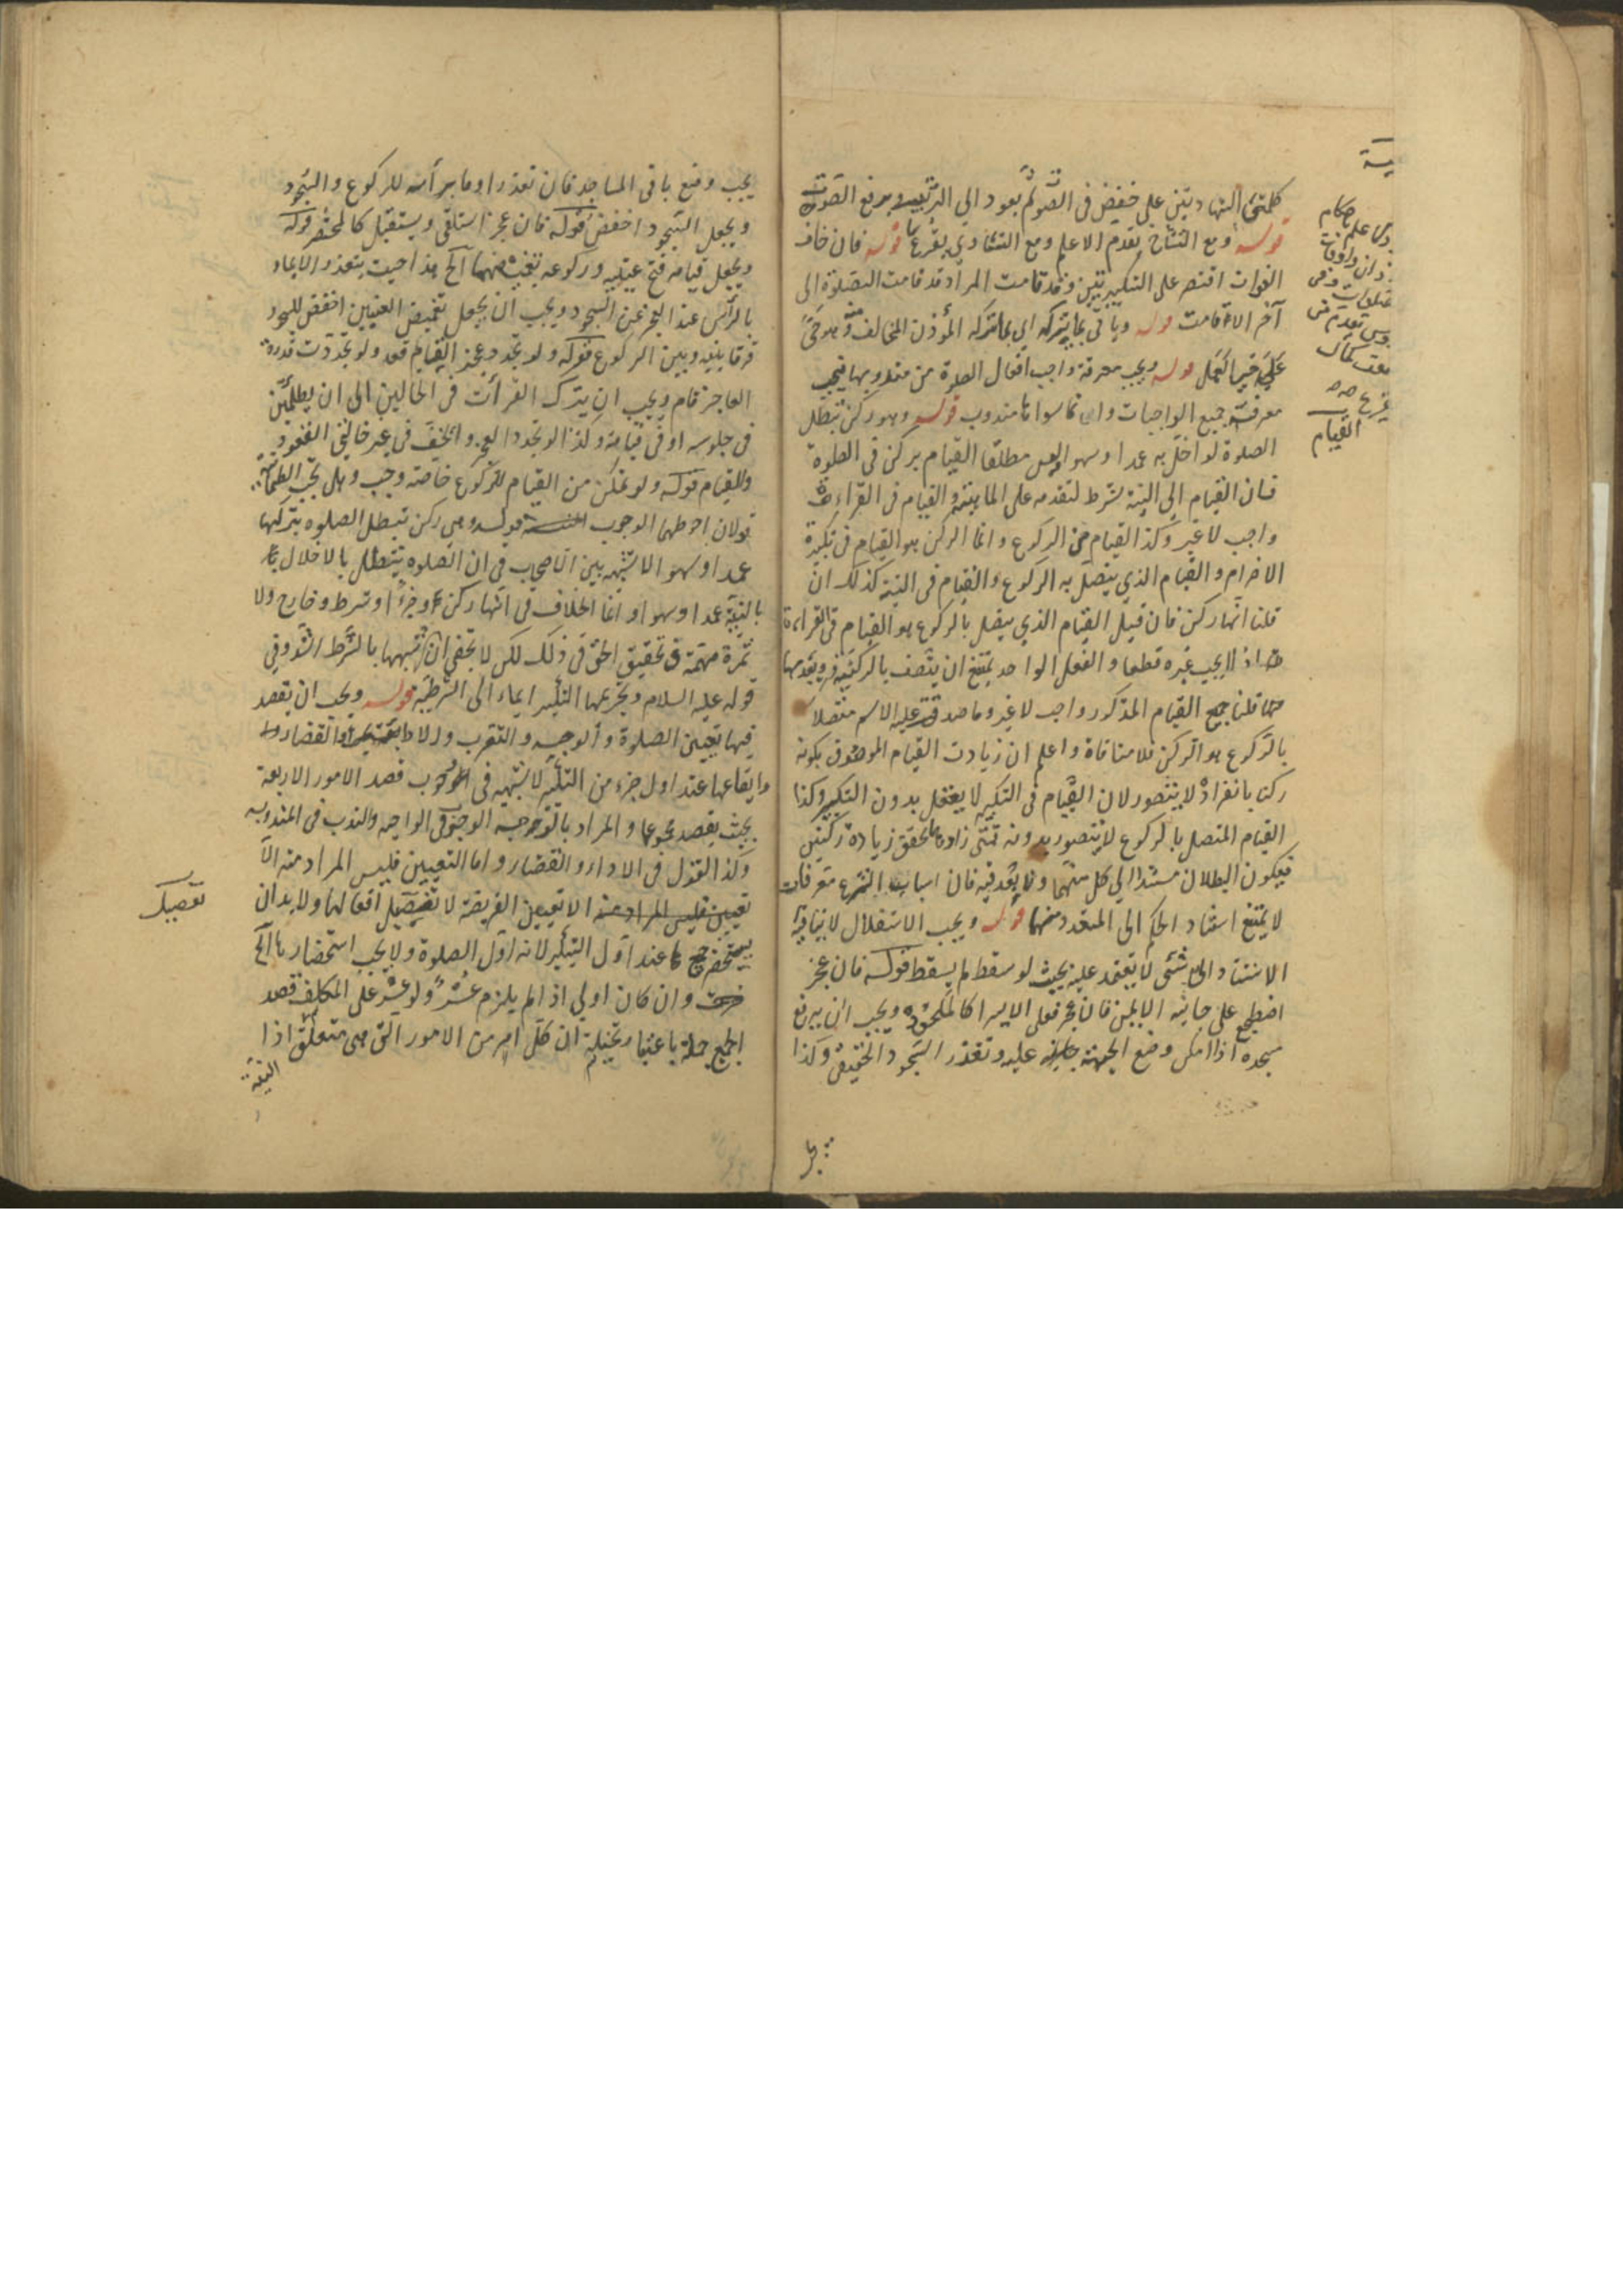 كلمتي الشهادتين على خفيض في الصوت ثم يعود الى الترتيب ويرفع الصوت
قوله ومع التشاح يقدم الاعلم ومع التساوي يقرع قوله فان خاف
الفوات اقتصر على التكبيرتين وقد قامت المراد قد قامت الصلوة الى
آخر الاقامت قوله ويأتي بما يتركه اي بما يتركه المؤذن المخالف وهو حي
على خير العمل قوله ويجب معرفة واجب افعال الصلوة من مندوبها فيجب
معرفة جميع الواجبات وان ما سواها مندوب قوله وهو ركن تبطل
الصلوة لو اخل به عمدا او سهوا ليس مطلقا القيام بركن في الصلوة
فان القيام الى النية شرط لتقدمه على الماهية والقيام في القراءة
واجب لا غير وكذا القيام من الركوع وانما الركن هو القيام في تكبيرة
الاحرام والقيام الذي يتصل به الركوع والقيام في النية كذلك ان
قلنا انها ركن فان قيل القيام الذي يتصل بالركوع هو القيام في القراءة
اذ لا يجب غيره قطعا والفعل الواحد يمتنع ان يتصف بالركنية وبعدمها
قلنا القيام المذكور واجب لا غير وما صدق عليه الاسم متصلا
بالركوع هو الركن فلا منافاة واعلم ان زيادت القيام الموصوف بكونه
ركنا بانفراده لا يتصور لان القيام في التكبير لا يعقل بدون التكبير وكذا
القيام المتصل بالركوع لا يتصور بدونه فمتى زاده تحقق زيادة ركنين
فيكون البطلان مستندا الى كل منهما ولا بعد فيه فان اسباب الشرع معرفات
لا يمتنع استناد الحكم الى المتعدد منها قوله ويجب الاستقلال لا ينافيه
الاستناد الى شئ لا يعتمد عليه بحيث لو سقط لم يسقط قوله فان عجز
اضطجع على جانبه الايمن فان عجز فعلى الايسر كالملحود ويجب ان يرفع
مسجده اذا امكن وضع الجبهة عليه وتعذر السجود الحقيقي وكذا
القيام
يجب وضع باقي المساجد فان تعذر اوما برأسه للركوع والسجود
ويجعل السجود اخفض قوله فان عجز استلقى ويستقبل كالمحتضر قوله
ويجعل قيامه فتح عينيه وركوعه تغميضهما آلخ هذا حيث يتعذر الايماء
بالرأس عند العجز عن السجود ويجب ان يجعل تغميض العينين اخفض للسجود
فرقا بينه وبين الركوع قوله ولو تجدد عجز القيام قعد ولو تجددت قدرة
العاجز قام ويجب ان يترك القرأت في الحالين الى ان يطمئن
في جلوسه او في قيامه وكذا لو تجدد العجز والخف في غير حالتي القعود
والقيام قوله ولو تمكن من القيام للركوع خاصة وجب وهل تجب الطمانينة
قولان احوطهما الوجوب قوله وهي ركن تبطل الصلوه بتركها
عمدا وسهوا لا شبهة بين الاصحاب في ان الصلوه تبطل بالاخلال
بالنية عمدا وسهوا وانما الخلاف في انها ركن وجزءا وشرط وخارج ولا
ثمرة مهمة في تحقيق الحق في ذلك لكن لا يخفى ان شبهها بالشرط اشد وفي
قوله عليه السلام وتحريمها التكبير ايماء الى الشرطية قوله ويجب ان يقصد
فيها تعيين الصلوة والوجه والتقرب والاداء والقضاء
وايقاعها عند اول جزء من التكبير لا شبهة في وجوب قصد الامور الاربعة
بحيث يقصد مجموعها والمراد بالوجه الوجوب في الواجبه والندب في المندوبه
وكذا القول في الاداء والقضاء واما التعيين فليس المراد منه الا
تعيين الفريضة لا تفصيل افعالها ولا بد ان
يستحضر عند اول التكبير لانه اول الصلوة ولا يجب استحضارها آلخ
وان كان اولى اذا لم يلزم عسر ولو عسر على المكلف قصد
الجميع جملة باعتبار تخيله ان كل امر من الامور التي هي متعلق اذا
النية
تفصيل